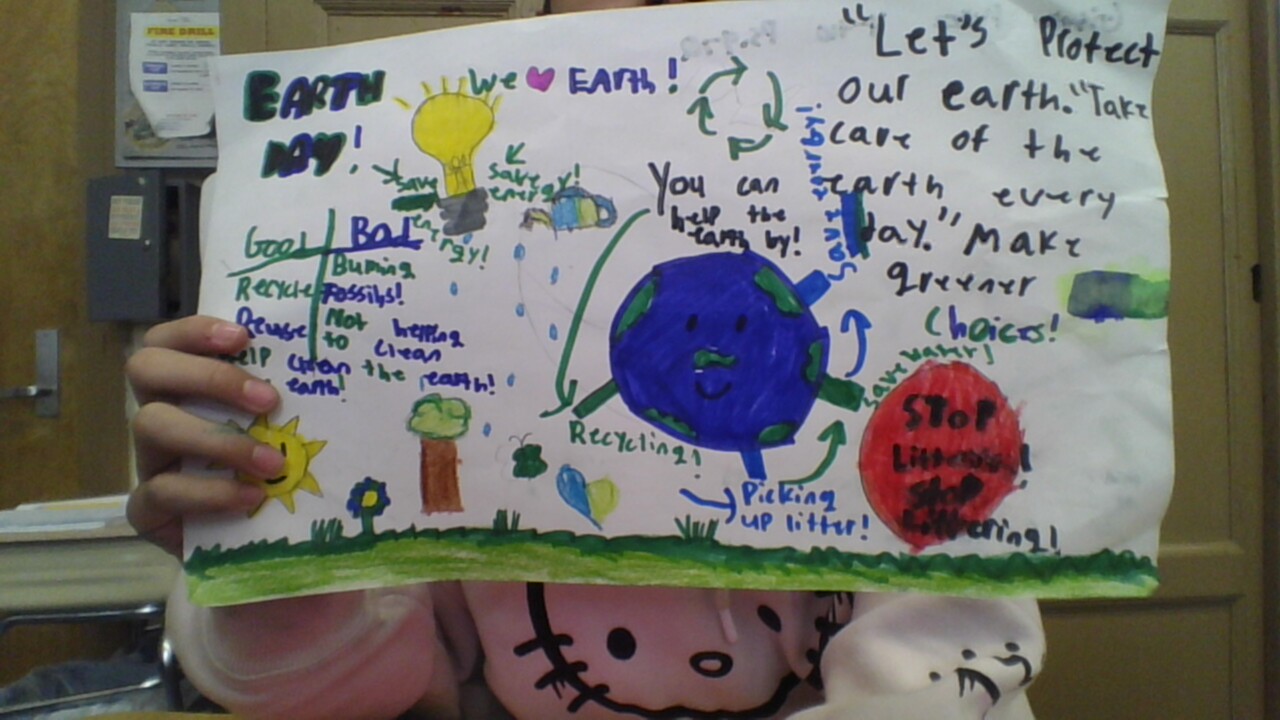 FIRE DRILL
EARTH
DAY!
We ❤ EARTH!
save
energy!
save
energy!
Good
Bad
Recycle
Reuse
Help clean the
earth!
Burning
Fossils!
Not helping
to clean
the earth!
You can
help the
earth by!
Save Energy!
save water!
Recycling!
Picking
up litter!
"Let"s Protect
our earth."Take
care of the
earth every
day." Make
greener
Choices!
STOP
Littering!
Stop
Littering!